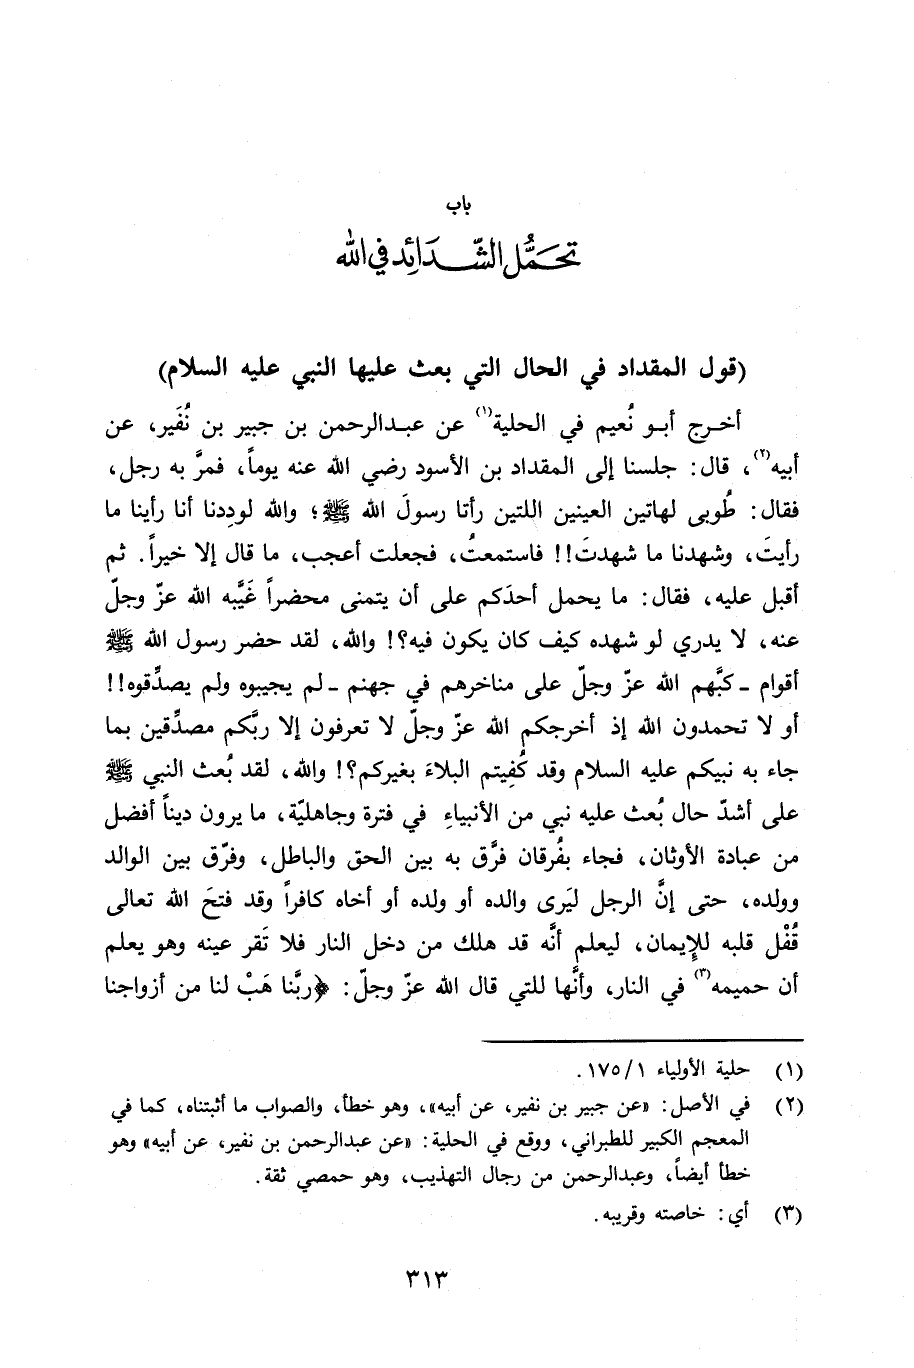 باب
تحمُّل الشّدائد في الله
(قول المقداد في الحال التي بعث عليها النبي عليه السلام)
أخرج أبو نُعيم في الحلية(١) عن عبدالرحمن بن جبير بن نُفَير، عن
أبيه(٢)، قال: جلسنا إلى المقداد بن الأسود رضي الله عنه يوماً، فمرَّ به رجل،
فقال: طُوبى لهاتين العينين اللتين رأتا رسولَ الله ﷺ؛ والله لودِدنا أنا رأينا ما
رأيتَ، وشهدنا ما شهدتَ!! فاستمعتُ، فجعلت أعجب، ما قال إلا خيراً. ثم
أقبل عليه، فقال: ما يحمل أحدَكم على أن يتمنى محضراً غَيَّبه الله عزّ وجلّ
عنه، لا يدري لو شهده كيف كان يكون فيه؟! والله، لقد حضر رسول الله ﷺ
أقوام ـ كبَّهم الله عزّ وجلّ على مناخرهم في جهنم ـ لم يجيبوه ولم يصدِّقوه!!
أو لا تحمدون الله إذ أخرجكم الله عزّ وجلّ لا تعرفون إلا ربَّكم مصدِّقين بما
جاء به نبيكم عليه السلام وقد كُفِيتم البلاءَ بغيركم؟! والله، لقد بُعث النبي ﷺ
على أشدّ حال بُعث عليه نبي من الأنبياءِ في فترة وجاهليّة، ما يرون ديناً أفضل
من عبادة الأوثان، فجاء بفُرقان فرَّق به بين الحق والباطل، وفرّق بين الوالد
وولده، حتى إنَّ الرجل ليَرى والده أو ولده أو أخاه كافراً وقد فتحَ الله تعالى
قُفْل قلبه للإيمان، ليعلم أنَّه قد هلك من دخل النار فلا تَقر عينه وهو يعلم
أن حميمه(٣) في النار، وأنَّها للتي قال الله عزّ وجلّ: ﴿ربَّنا هَبْ لنا من أزواجنا
(١) حلية الأولياء ١/١٧٥.
(٢) في الأصل: «عن جبير بن نفير، عن أبيه»، وهو خطأ، والصواب ما أثبتناه، كما في
المعجم الكبير للطبراني، ووقع في الحلية: «عن عبدالرحمن بن نفير، عن أبيه» وهو
خطأ أيضاً، وعبدالرحمن من رجال التهذيب، وهو حمصي ثقة.
(٣) أي: خاصته وقريبه.
٣١٣